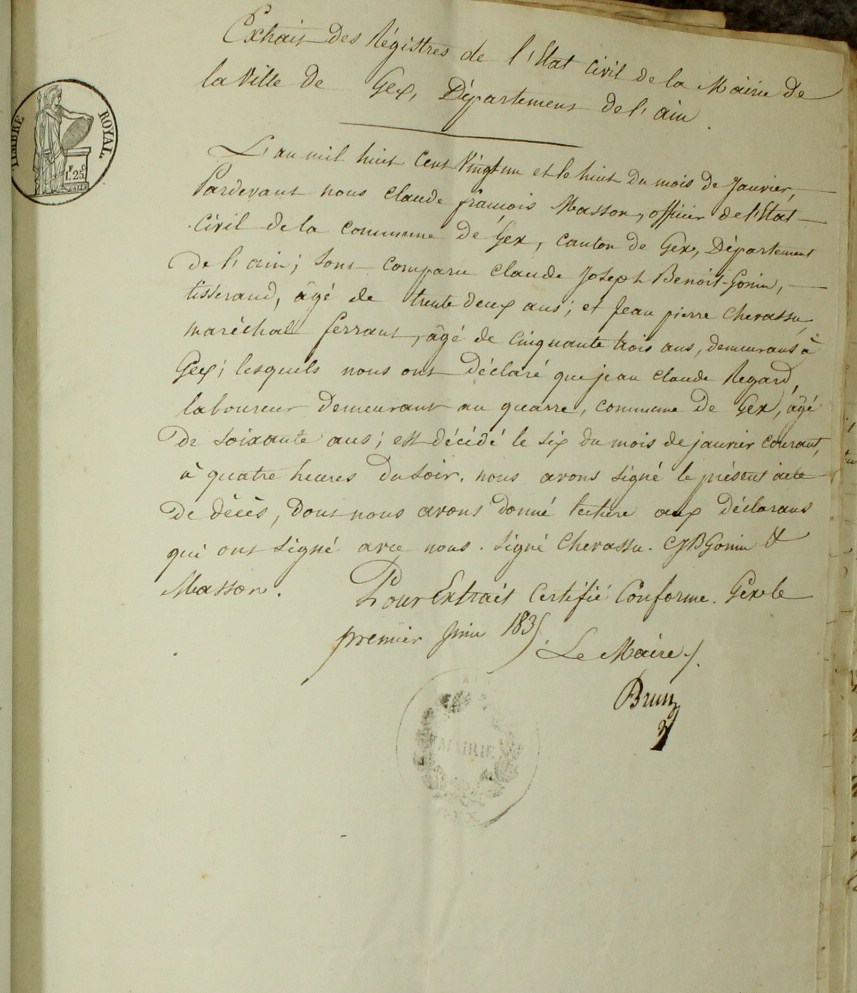 Extrait des Régistres de l'Etat Civil de la Mairie de
la Ville de Gex, Département de l'ain.
TIMBRE ROYAL
1f.25c
L'an mil huit cent vingt un et le huit du mois de janvier,
Pardevant nous Claude françois Masson, officier de l'Etat
Civil de la commune de Gex, canton de Gex, Département
de l'ain; sont comparu Claude Joseph Benoit-Gonin,
tisserand, âgé de trente deux ans; et Jean pierre Chevassu,
maréchal ferrant, âgé de cinquante trois ans, demeurans à
Gex; lesquels nous ont déclaré que jean Claude Regard,
laboureur demeurant au quarre, commune de Gex, âgé
de soixante ans; est décédé le six du mois de janvier courant,
à quatre heures du soir. nous avons signé le présent acte
de décès, dont nous avons donné lecture aux déclarans
qui ont signé avec nous. signé Chevassu. CJBGonin &
Masson. Pour Extrait Certifié Conforme. Gex le
premier juin 1835. Le Maire,
Brun
MAIRIE